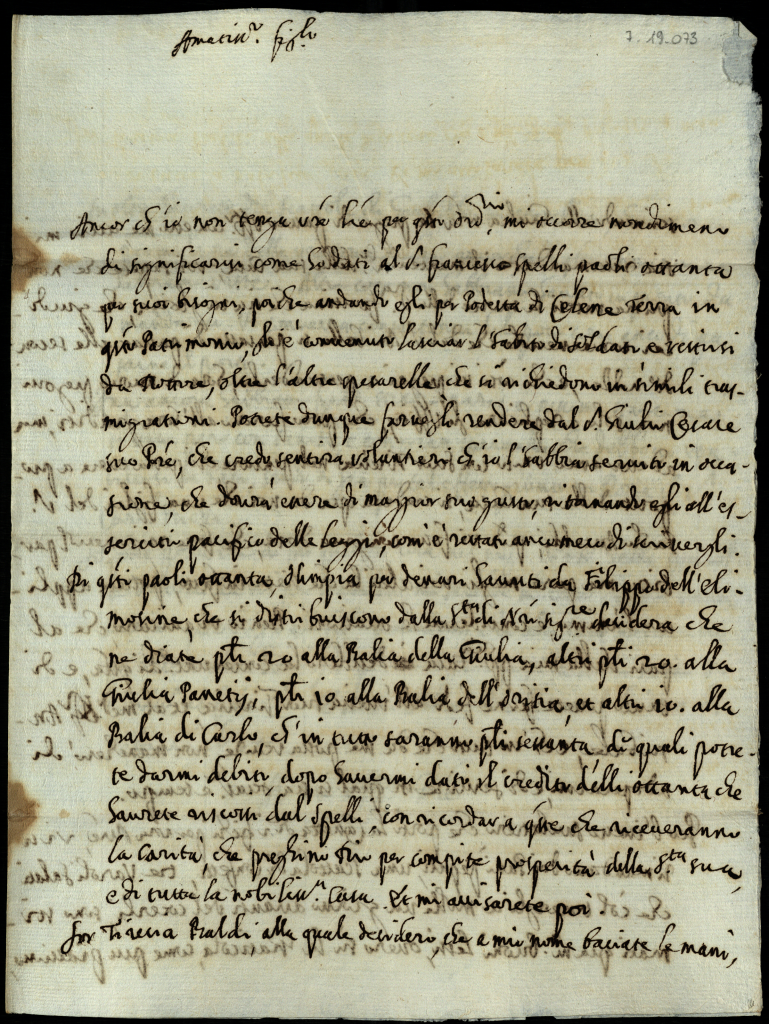 Amatiss.r figlo
7-19-073
Ancor ch'io non tenga vre lre per qsto ordrio, mi occorre nondimeno
di significarvi come hò dati al S. francesco Spelli paoli ottanta
per suoi bisogni, poiche andando egli per Podestà di Celere Terra in
qsto Patrimonio, gl'è convenuto lasciar l'habito di Soldati e vestirsi
da Dottore, oltre l'altre spesarelle che si richiedono in simili tras-
migrationi. Potrete dunque farvegli rendere dal S. Giulio Cesare
suo Pre, che credo sentirà voluntieri ch'io l'habbia servito in occa-
sione, che dovrà essere di maggior suo gusto, ritornando egli all'es-
sercitio pacifico delle leggi, com'è restato anco meco di scrivergli.
Di qsti paoli ottanta, Olimpia per denari havuti da Filippo dell'eli-
mosine, che si distribuiscono dalla S.ta di Nro Sig.re desidera che
ne diate pli 20 alla Balia della Giulia, altri pli 20. alla
Giulia Panetij, pli 10 alla Balia dell'Orsina, et altri 10. alla
Balia di Carlo, ch'in tutto saranno pli sessanta, di quali potre-
te darmi debito, dopo havermi dato il credito delli ottanta che
haurete riscossi dal Spelli, con ricordar a qste che riceveranno
la carità, che preghino Dio per compite prosperità della S.ta sua,
e di tutta la nobiliss.a Casa. Et mi avisarete poi.
Baldi alla quale desidero, che a mio nome baciate le mani,